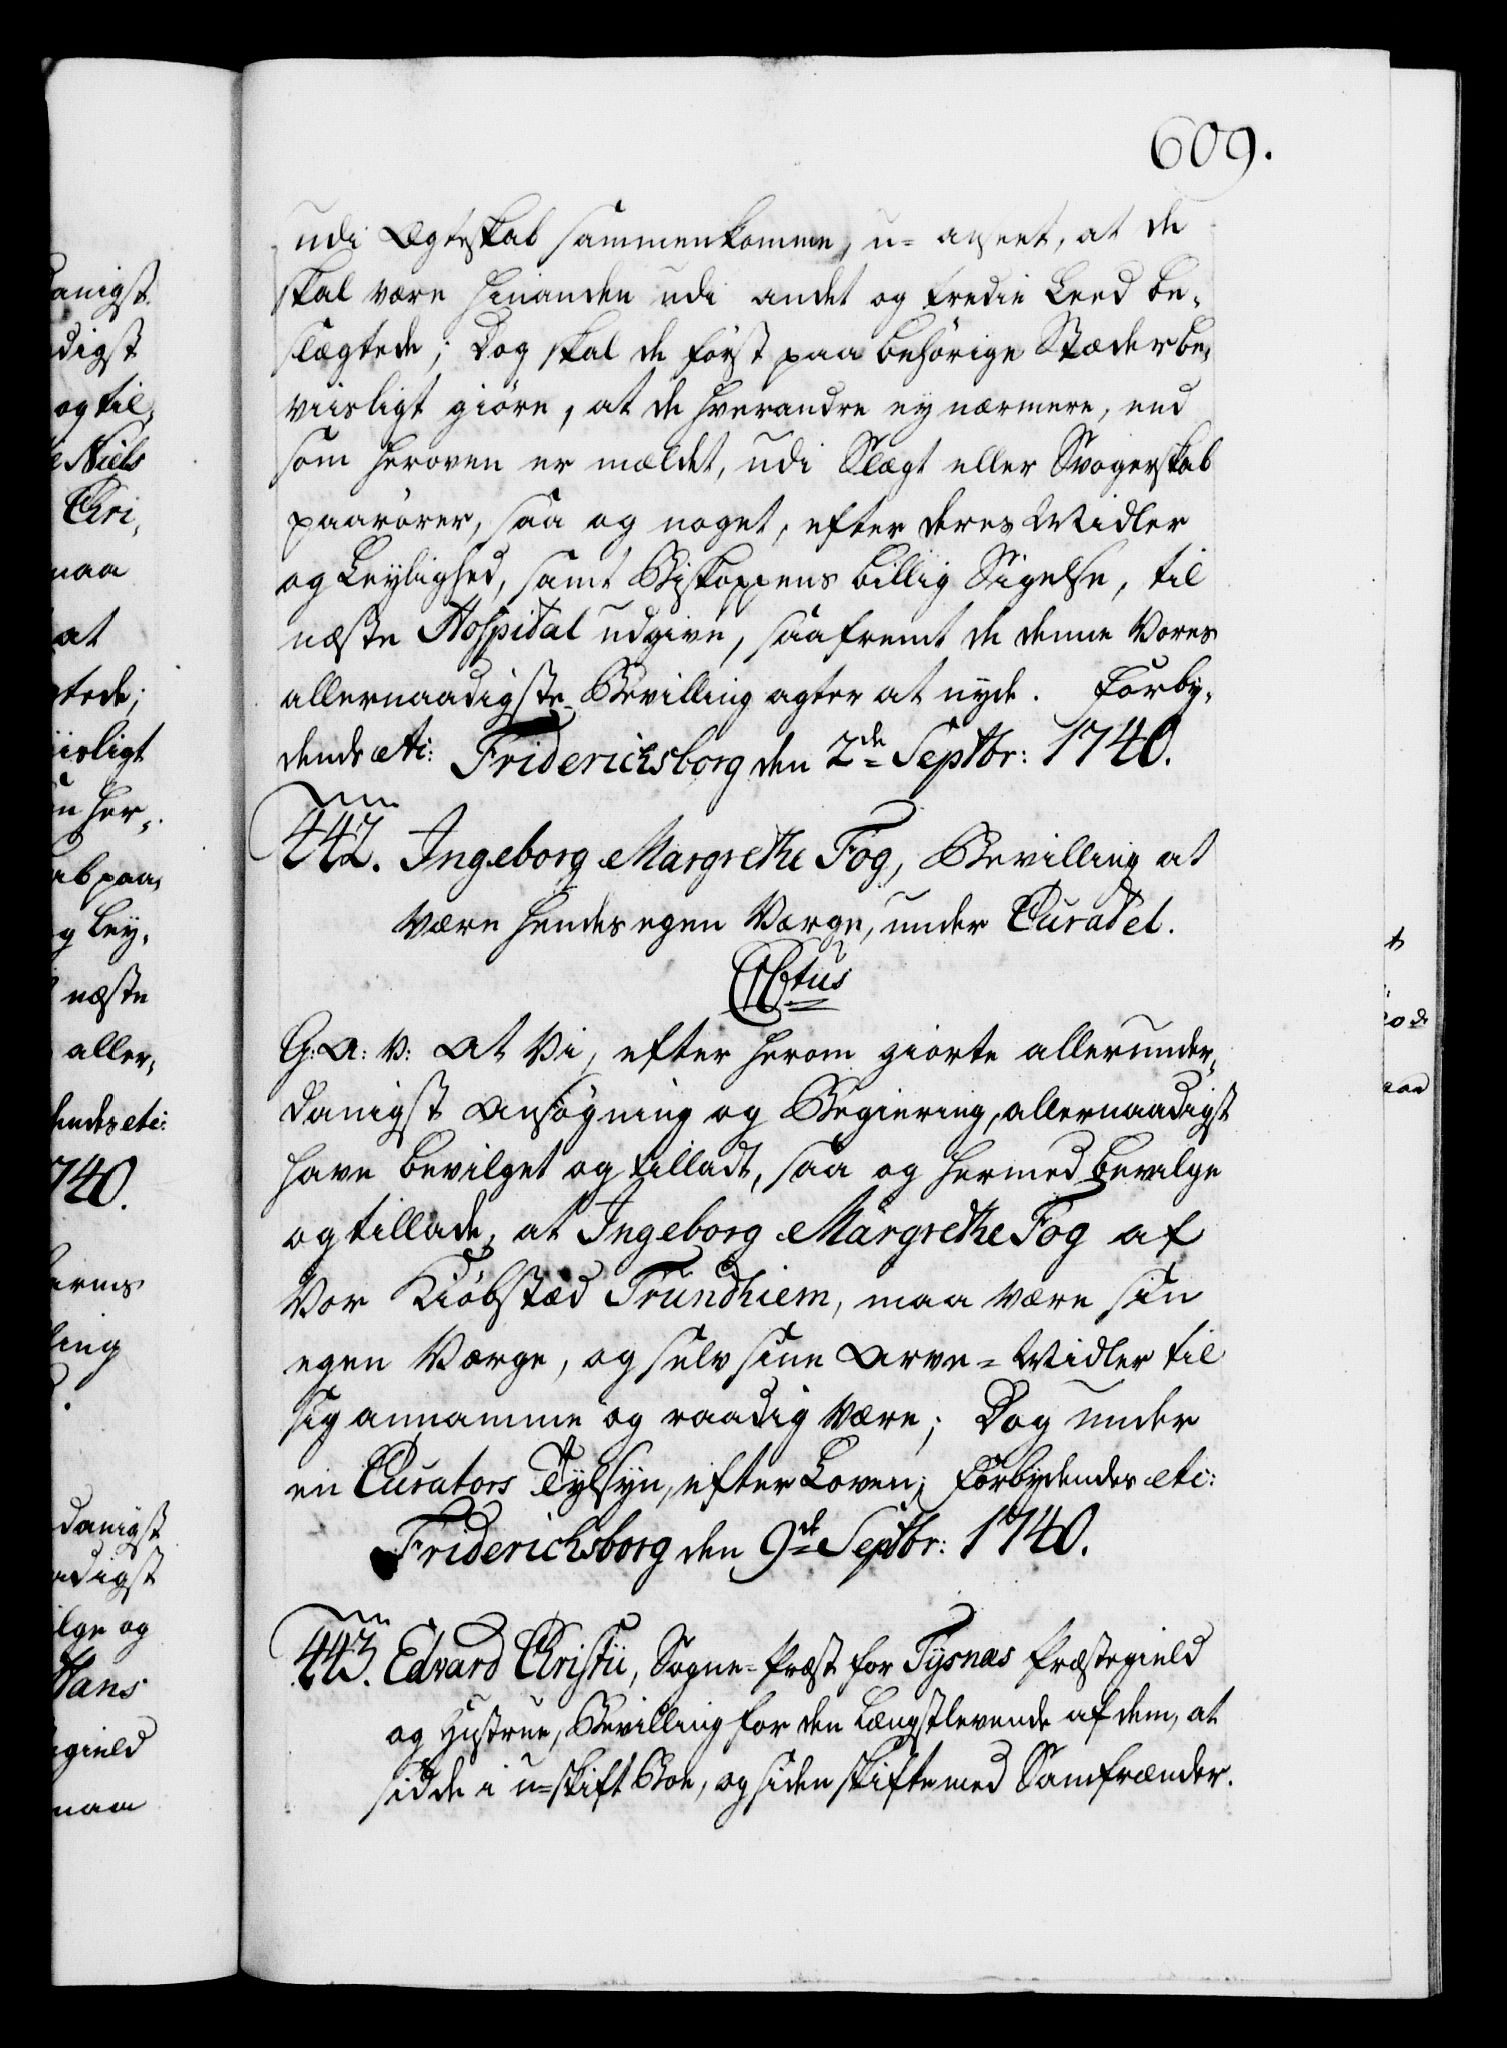 609.
udi Ægteskab sammenkomme, u-anseet, at de
skal være hinanden udi andet og tredie Leed be-
slægtede; Dog skal de først paa behørige Stæder be-
viisligt giøre, at de hverandre ey nærmere, end
som heroven er mældet, udi Slægt eller Svogerskab
paarører, saa og noget, efter deres Midler
og Leylighed, samt Biskoppens billig Sigelse, til
næste Hospital udgive, saafremt de denne Vores
allernaadigste Bevilling agter at nyde. Forby-
dendes etc: Friderichsborg den 2de Septbr: 1740.
442. Ingeborg Margrethe Fog, Bevilling at
være hendes egen Værge, under Curatel.
C6tus
G: A: V: At Vi, efter herom giorte allerunder-
danigst Ansøgning og Begiering, allernaadigst
have bevilget og tilladt, saa og hermed bevilge
og tillade, at Ingeborg Margrethe Fog af
Vor Kiøbstæd Trundhiem, maa være sin
egen Værge, og selv sine Arve-Midler til
sig annamme og raadig være; Dog under
en Curators Tilsyn, efter Loven; Forbydendes etc:
Friderichsborg den 9de Septbr: 1740.
443. Edvard Christii, Sogne-Præst for Tysnæs Præstegield
og Hustrue, Bevilling for den Længstlevende af dem, at
sidde i u-skift Boe, og siden skifte med Samfrænder.